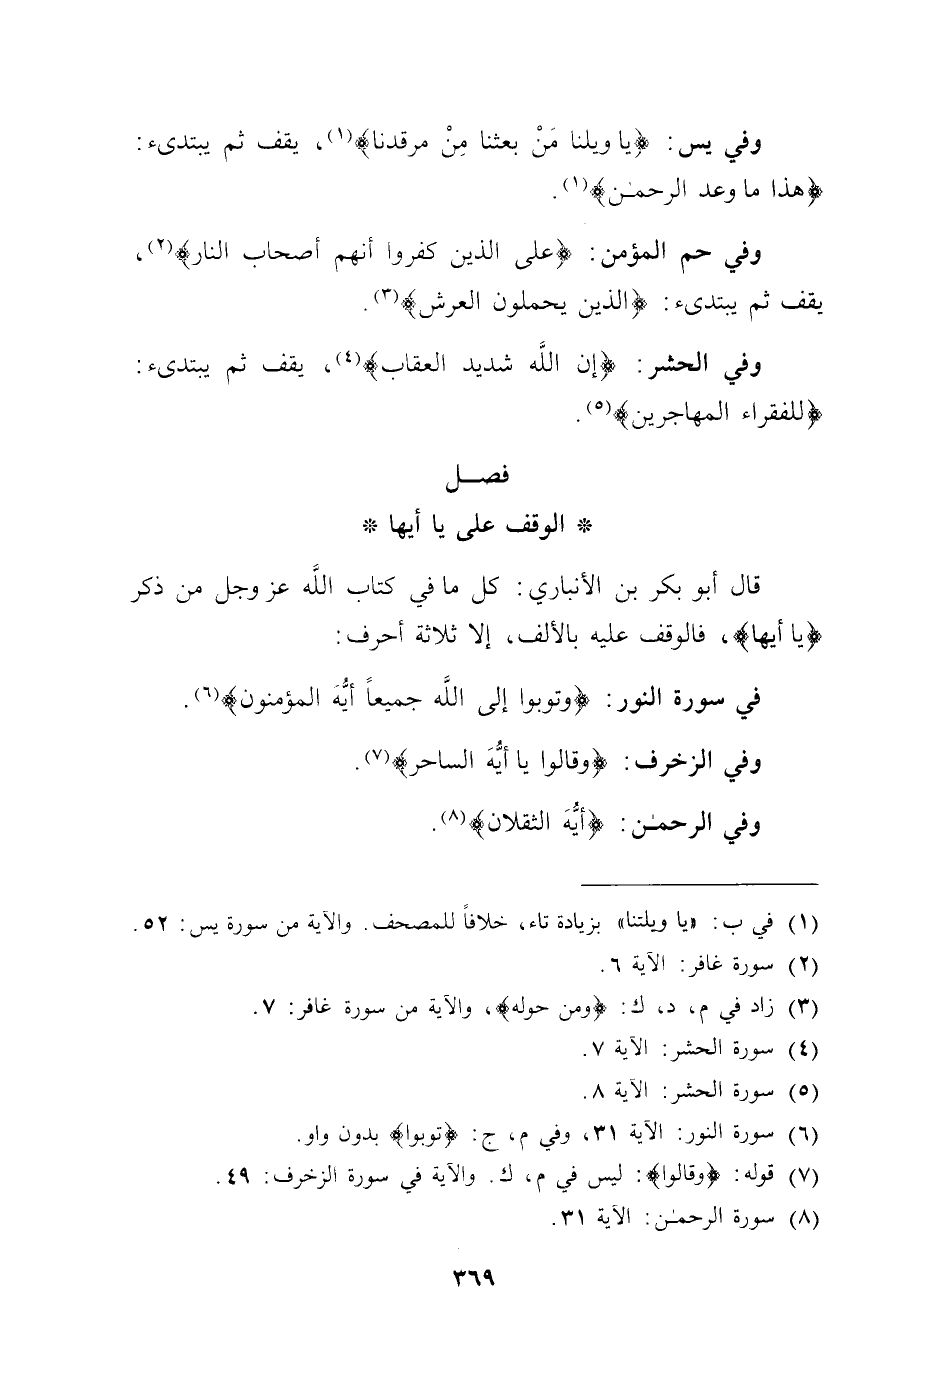 وفي يس: ﴿يا ويلنا مَنْ بعثنا مِنْ مرقدنا﴾(١)، يقف ثم يبتدىء:
﴿هذا ما وعد الرحمـٰن﴾(١).
وفي حم المؤمن: ﴿على الذين كفروا أنهم أصحاب النار﴾(٢)،
يقف ثم يبتدىء: ﴿الذين يحملون العرش﴾(٣).
وفي الحشر: ﴿إن اللَّه شديد العقاب﴾(٤)، يقف ثم يبتدىء:
﴿للفقراء المهاجرين﴾(٥).
فصـــل
* الوقف على يا أيها *
قال أبو بكر بن الأنباري: كل ما في كتاب اللَّه عز وجل من ذكر
﴿يا أيها﴾، فالوقف عليه بالألف، إلا ثلاثة أحرف:
في سورة النور: ﴿وتوبوا إلى اللَّه جميعاً أيُّهَ المؤمنون﴾(٦).
وفي الزخرف: ﴿وقالوا يا أيُّهَ الساحر﴾(٧).
وفي الرحمـٰن: ﴿أيُّهَ الثقلان﴾(٨).
(١) في ب: «يا ويلتنا» بزيادة تاء، خلافاً للمصحف. والآية من سورة يس: ٥٢.
(٢) سورة غافر: الآية ٦.
(٣) زاد في م، د، ك: ﴿ومن حوله﴾، والآية من سورة غافر: ٧.
(٤) سورة الحشر: الآية ٧.
(٥) سورة الحشر: الآية ٨.
(٦) سورة النور: الآية ٣١، وفي م، ج: ﴿توبوا﴾ بدون واو.
(٧) قوله: ﴿وقالوا﴾: ليس في م، ك. والآية في سورة الزخرف: ٤٩.
(٨) سورة الرحمـٰن: الآية ٣١.
٣٦٩